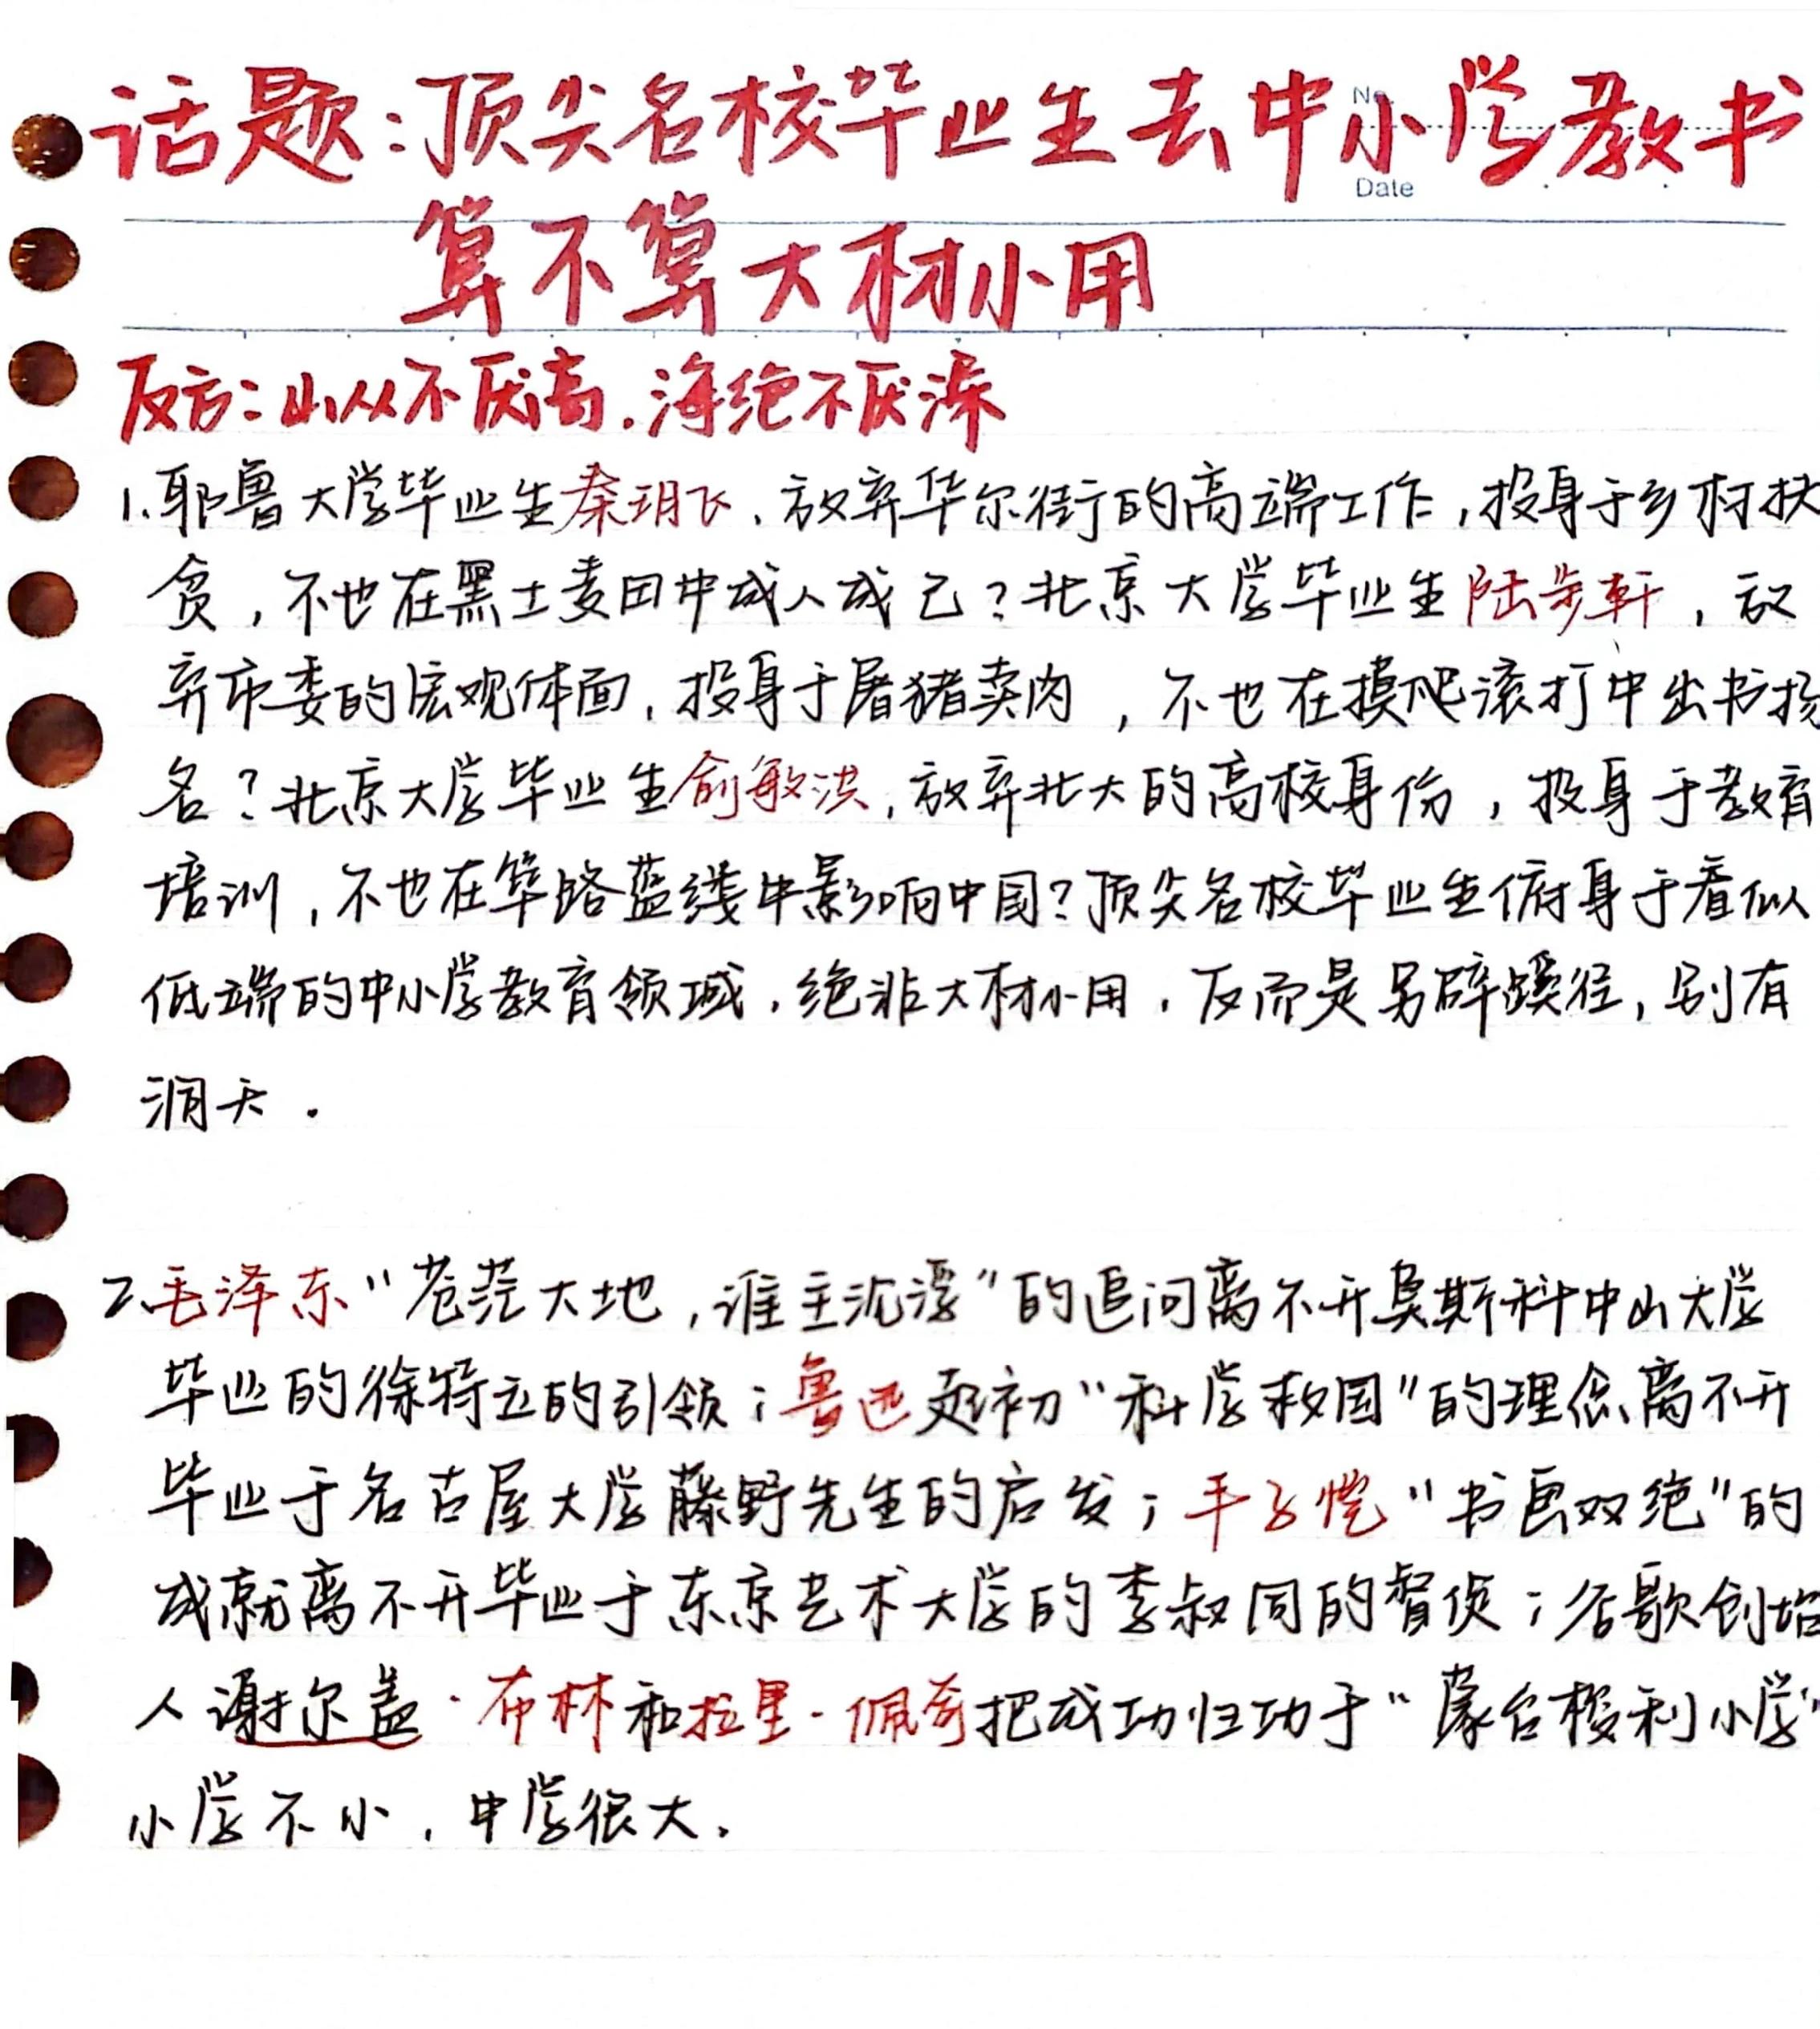 No.
话题:顶尖名校毕业生去中小学教书
Date
算不算大材小用
反方:山从不厌高,海绝不厌深
1.耶鲁大学毕业生秦玥飞,放弃华尔街的高端工作,投身于乡村扶
贫,不也在黑土麦田中成人成己?北京大学毕业生陆步轩,放
弃市委的宏观体面,投身于屠猪卖肉,不也在摸爬滚打中出书扬
名?北京大学毕业生俞敏洪,放弃北大的高校身份,投身于教育
培训,不也在筚路蓝缕中影响中国?顶尖名校毕业生俯身于看似
低端的中小学教育领域,绝非大材小用,反而是另辟蹊径,别有
洞天.
2.毛泽东"苍茫大地,谁主沉浮"的追问离不开莫斯科中山大学
毕业的徐特立的引领;鲁迅起初"科学救国"的理念离不开
毕业于名古屋大学藤野先生的启发;丰子恺"书画双绝"的
成就离不开毕业于东京艺术大学的李叔同的督促;谷歌创始
人谢尔盖·布林和拉里·佩奇把成功归功于"蒙台梭利小学"
小学不小,中学很大.